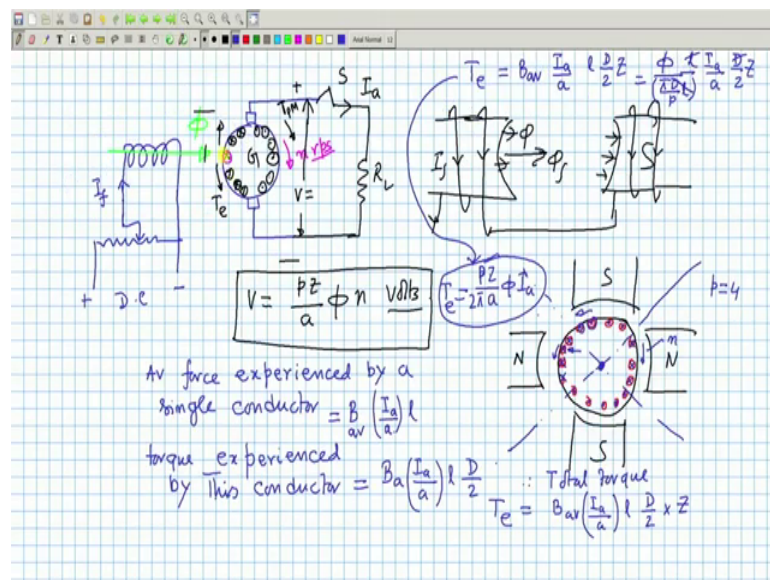 Arial Normal 12
T_e = B_av I_a/a l D/2 Z = φ/(πD/p l) l I_a/a D/2 Z
S I_a
+
T_PM
φ
n rps
G
I_f
T_e
V=
R_L
I_f φ φ_f S
+ D.C −
−
V = pZ/a φ n Volts
T_e = pZ/2πa φ I_a
S
p=4
N n N
S
Av force experienced by a
single conductor = B_av (I_a/a) l
torque experienced
by This conductor = B_a (I_a/a) l D/2
∴ Total torque
T_e = B_av (I_a/a) l D/2 × Z